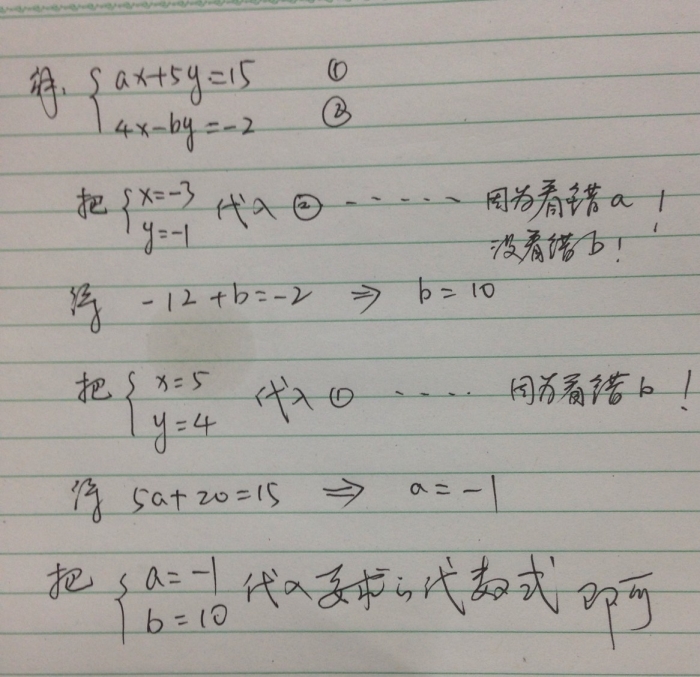 解: { ax+5y=15 ①
4x-by=-2 ②
把 { x=-3 代入 ② ------ 因为看错a!
y=-1 没看错b!
得 -12+b=-2 ⇒ b=10
把 { x=5 代入 ① ····· 因为看错b!
y=4
得 5a+20=15 ⇒ a=-1
把 { a=-1 代入要求的代数式 即可
b=10